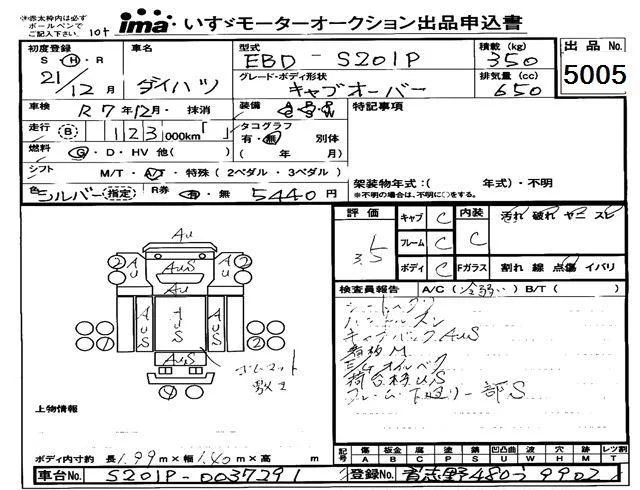 ※赤太枠内は必ず
ボールペンで
ご記入下さい。 10t
ima いすゞモーターオークション出品申込書
初度登録 車名 型式 積載 (kg) 出品 No.
S・H・R 21/12月 ダイハツ EBD-S201P 350 5005
グレード・ボディ形状 排気量 (cc)
キャブオーバー 650
車検 R7年12月・抹消 装備 A C P S P W 特記事項
走行 B 123,000km「 」 タコグラフ 有・無 別体
燃料 G・D・HV 他( ) ( 年 月)
シフト M/T・A/T・特殊 (2ペダル・3ペダル) 架装物年式:( 年式)・不明
※不明の場合は、不明に○をする。
色 シルバー (指定) R券 有・無 5440円
評価 3.5 キャブ C 内装 C 汚れ 破れ ヤニ スレ
フレーム C
ボディ C Fガラス 割れ 線 点傷 イバリ
検査員報告 A/C (冷弱い) B/T ( )
キャブバックAUS
看板M
E/Gオイルベタ
荷台枠US
フレーム・下廻り一部S
AU
2 AU AUS AU 2
AU
AUS AUS
AUS
ゴムマット
敷き
上物情報
ボディ内寸約 長1.99m×幅1.40m×高 m
記号 傷A 板金B 腐C 塗P 錆S 凹凸曲U 波W 穴H 跡M レツ割T
車台No. S201P-0037291 登録No. 習志野480う9902